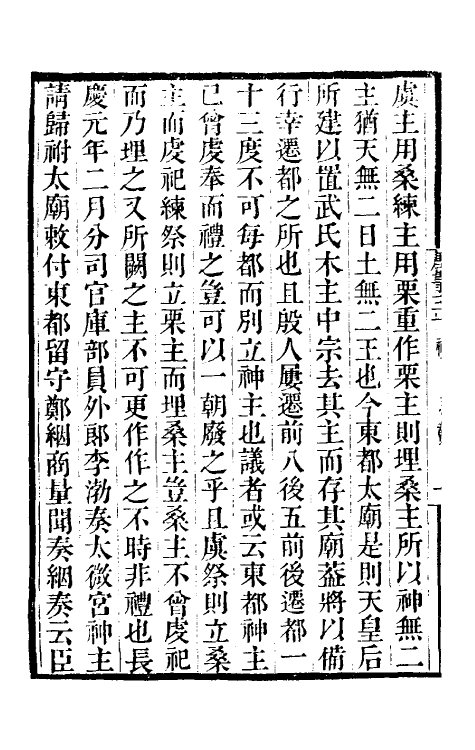 虞主用桑練主用栗重作栗主則埋桑主所以神無二
主猶天無二日土無二王也今東都太廟是則天皇后
所建以置武氏木主中宗去其主而存其廟葢將以備
行幸遷都之所也且殷人屢遷前八後五前後遷都一
十三度不可每都而別立神主也議者或云東都神主
已曾虔奉而禮之豈可以一朝廢之乎且虞祭則立桑
主而虔祀練祭則立栗主而埋桑主豈桑主不曾虔祀
而乃埋之又所闕之主不可更作作之不時非禮也長
慶元年二月分司官庫部員外郎李渤奏太微宮神主
請歸祔太廟敕付東都留守鄭絪商量聞奏絪奏云臣